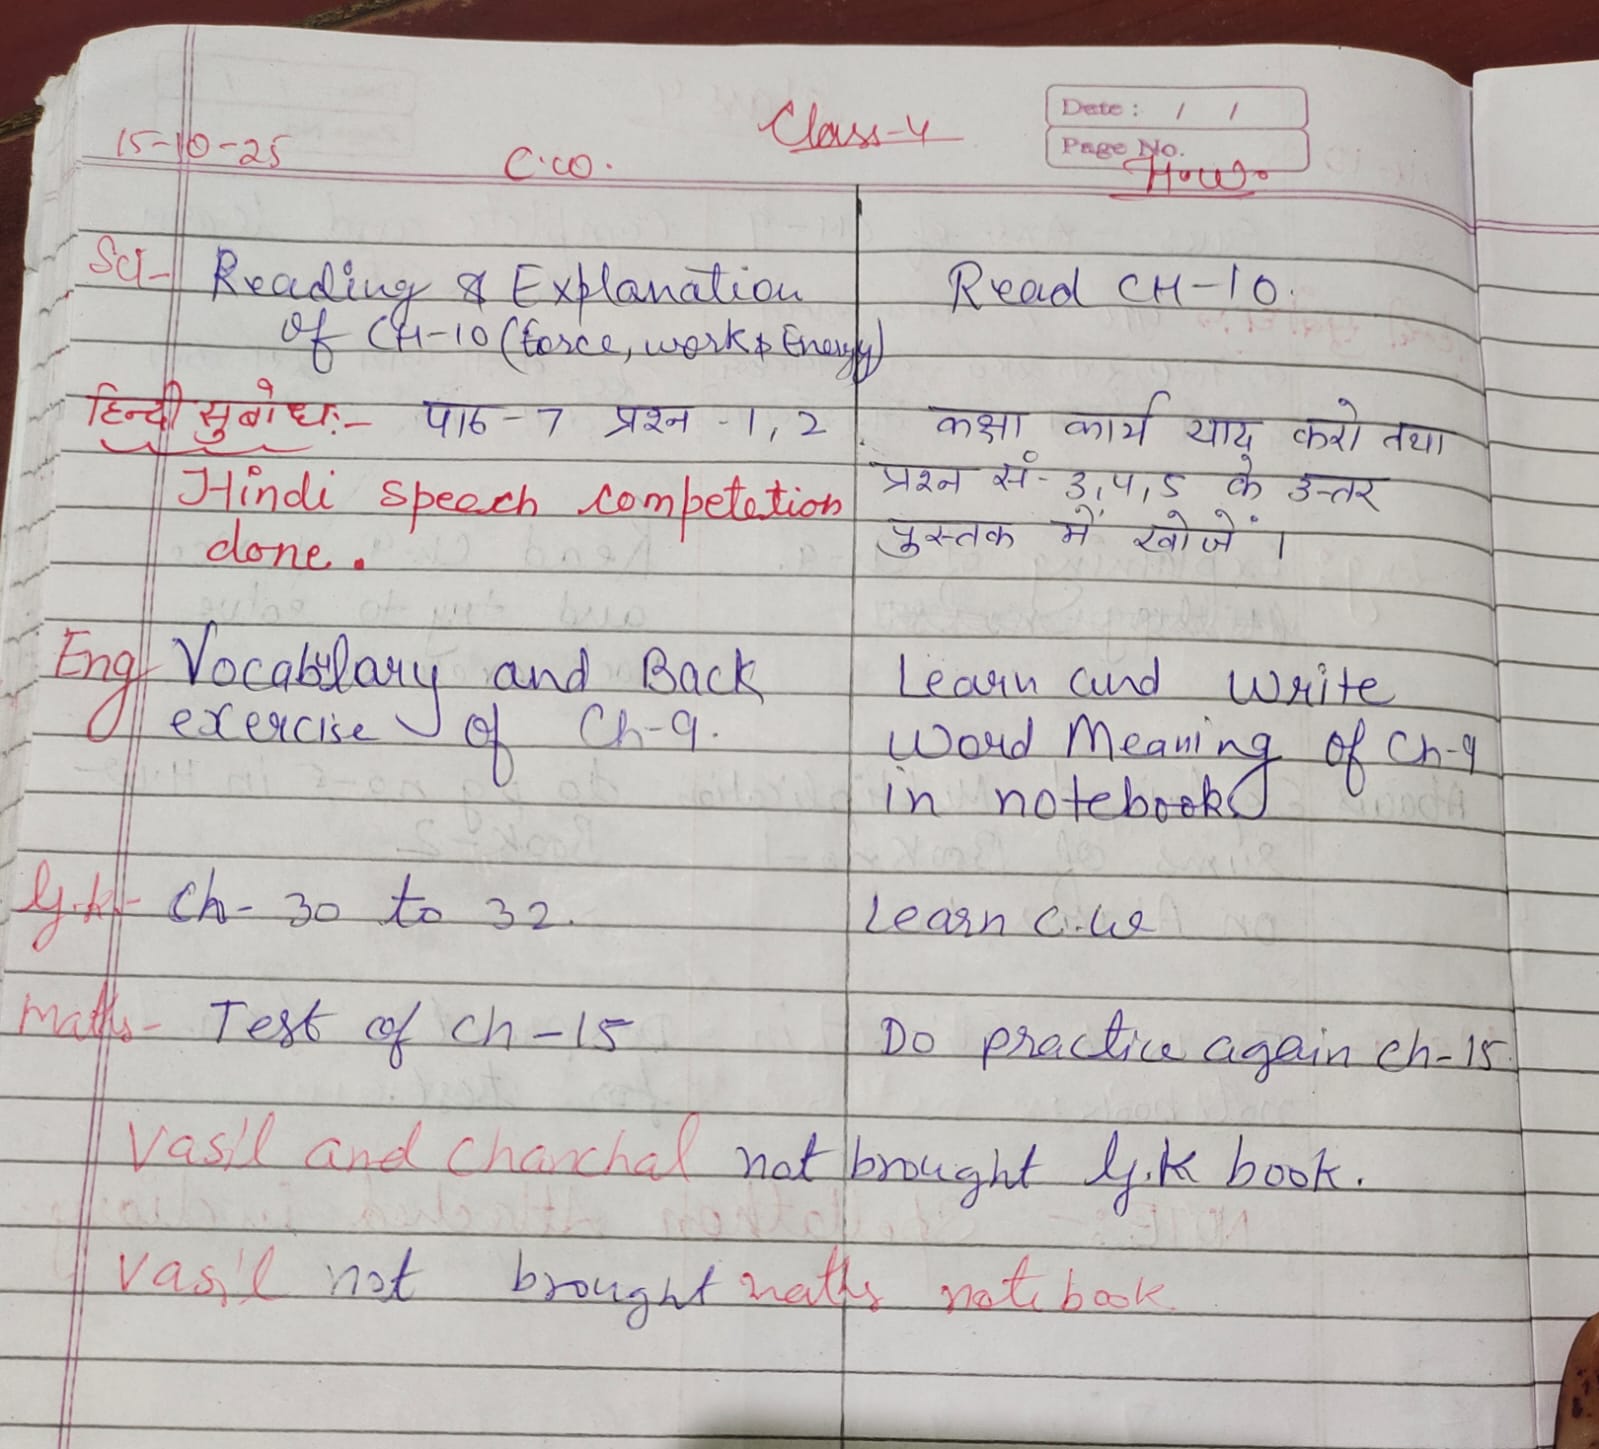 Class-4
Date: / /
Page No.
15-10-25 C.W. H.W.
Sci- Reading & Explanation
of CH-10 (force, work & Energy)
Read CH-10.
हिन्दी सुबोध:- पाठ-7 प्रश्न -1,2
कक्षा कार्य याद करो तथा
प्रश्न सं- 3,4,5 के उत्तर
पुस्तक में खोजें ।
Hindi speech competetion
done.
Eng- Vocabulary and Back
exercise of Ch-9.
Learn and write
word Meaning of Ch-9
in notebook
G.K- Ch- 30 to 32.
Learn C.W
Maths- Test of ch-15
Do practice again ch-15.
Vasil and Chanchal not brought G.K book.
Vasil not brought maths notebook.